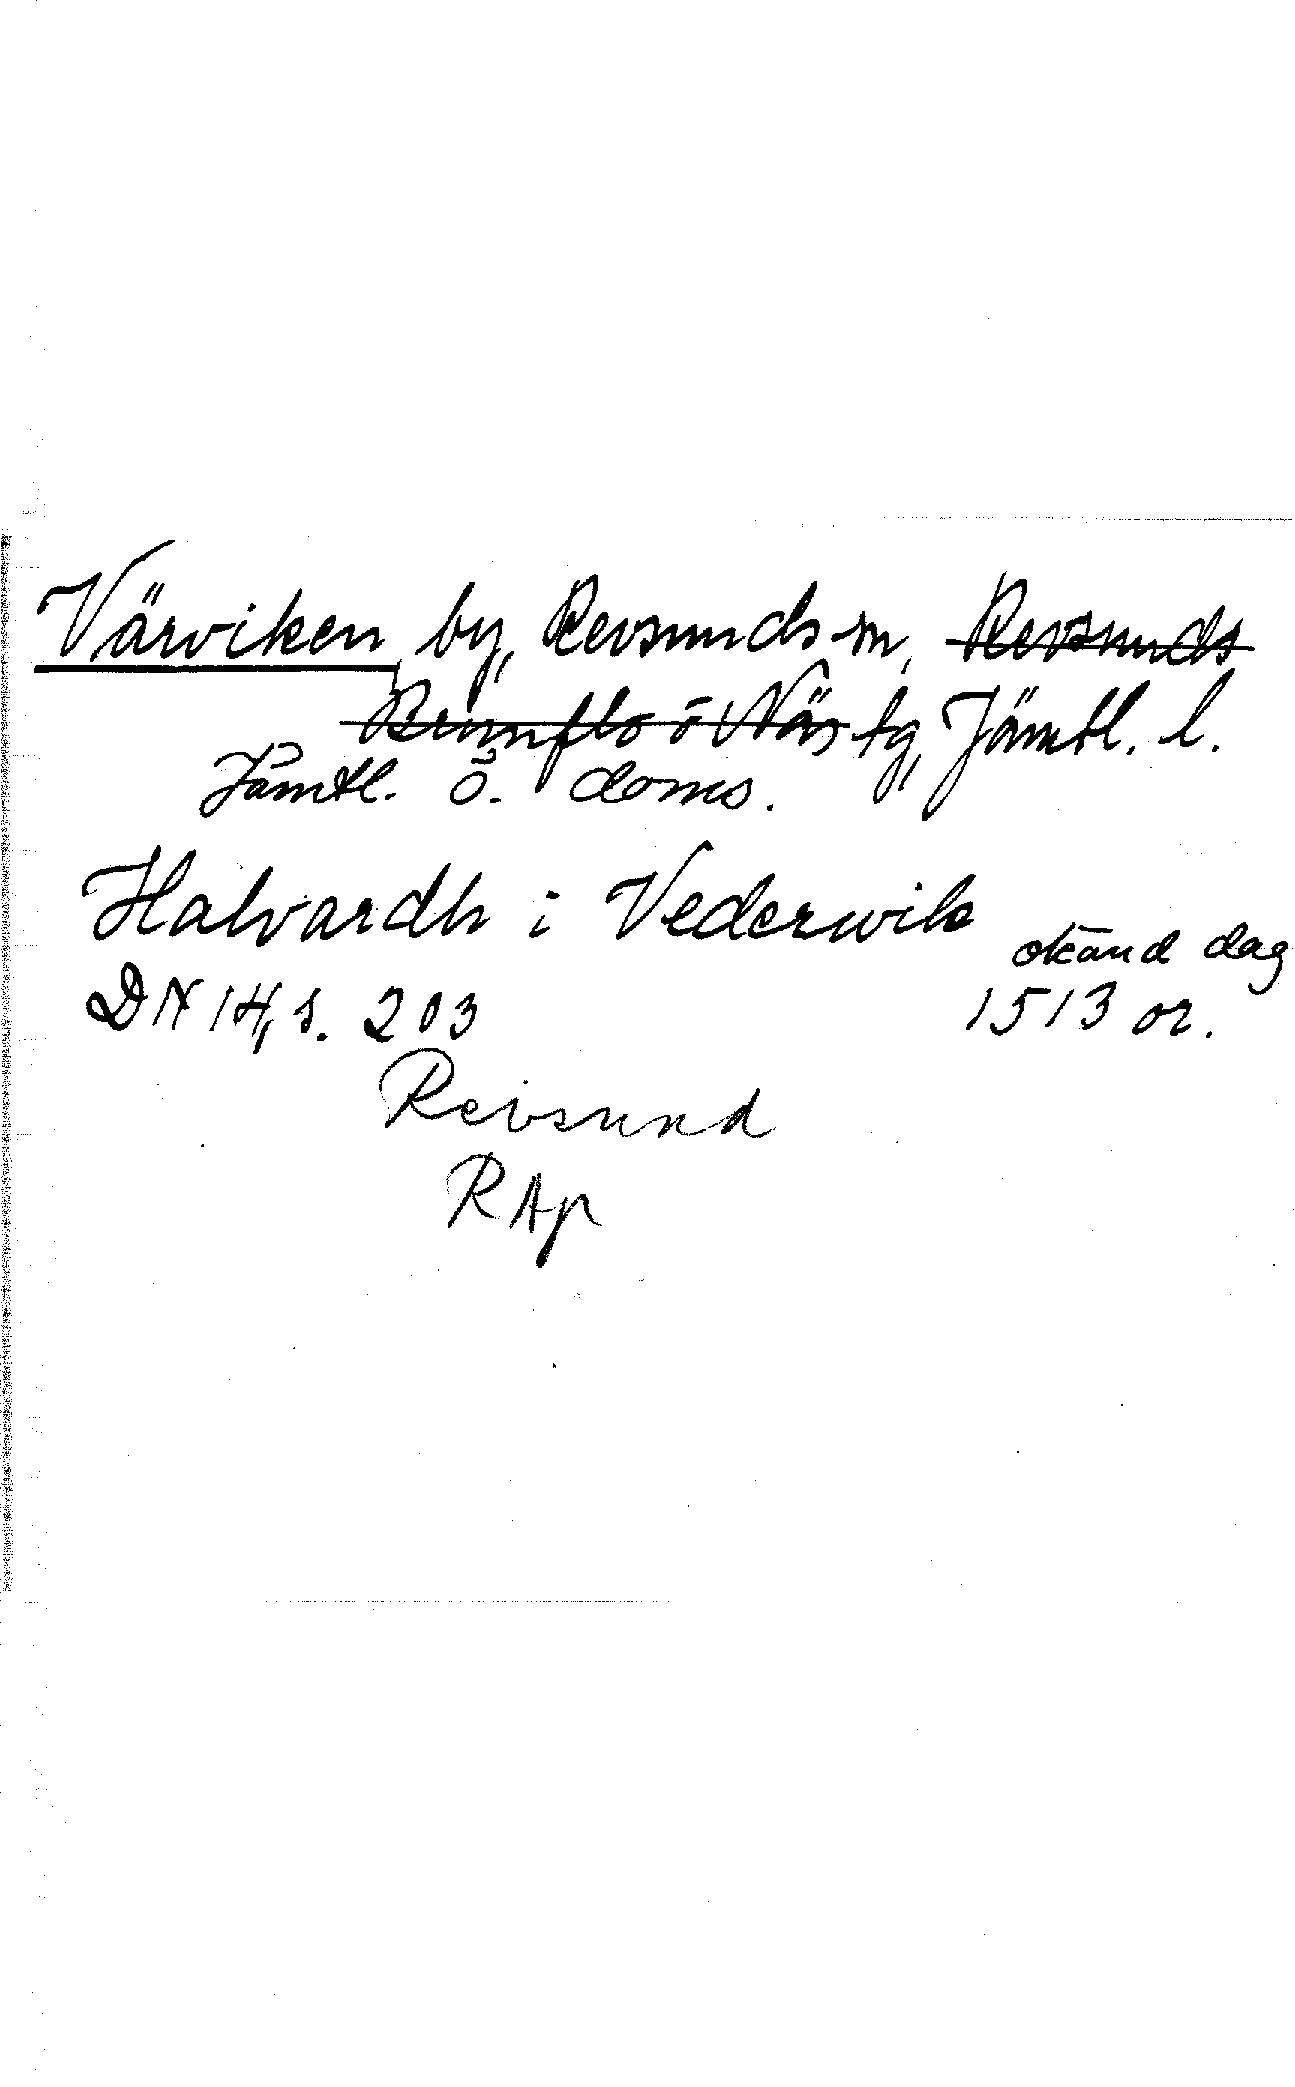 Värviken by, Revsunds sn, Revsunds
Brunflo o Näs tg, Jämtl. l.
Jämtl. ö. doms.
Halvardh i Vederwik
okänd dag
DN 14, s. 203 1513 or.
Revsund
RAp